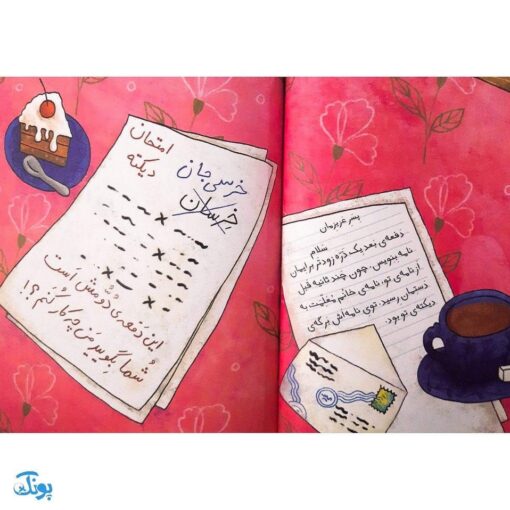 پسر عزیزمان
سلام
دفعه‌ی بعد یک ذره زودتر برایمان
نامه بنویس. چون چند ثانیه قبل
از نامه‌ی تو، نامه‌ی خانم به
دستمان رسید. توی نامه‌اش برگه‌ی
دیکته‌ی تو بود.
امتحان
دیکته
خرسی جان
این دفعه‌ی دُوُمش است
شما بگویید من چه کار کُنَم؟!
پونک